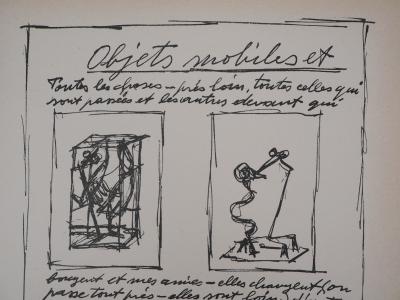 Objets mobiles et
Toutes les choses – près loin, toutes celles qui
sont passées et les autres devant qui
bougent et mes amies – elles changent (on
passe tout près – elles sont loin)